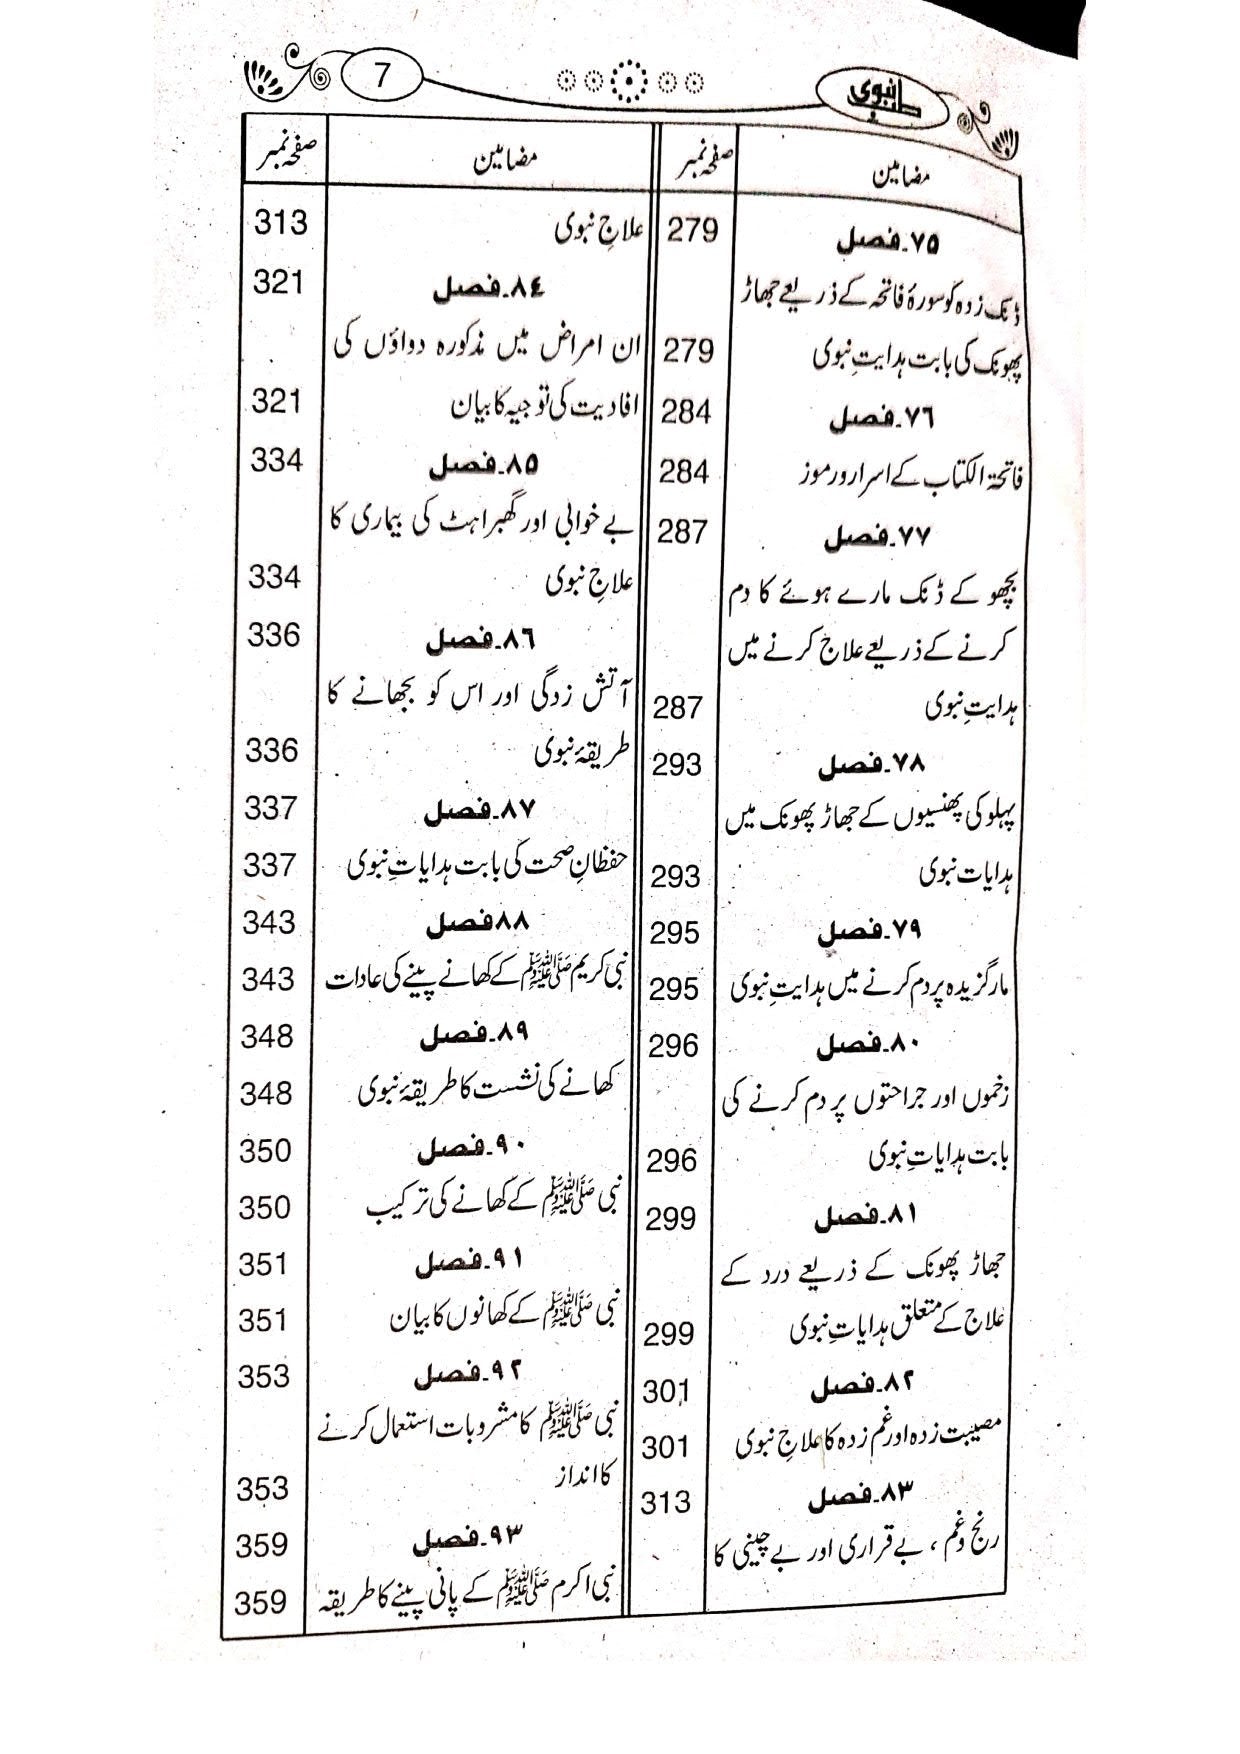 7
طب نبوی
مضامین
صفحہ نمبر
۷۵۔فصل
279
ڈنک زدہ کو سورۂ فاتحہ کے ذریعے جھاڑ
پھونک کی بابت ہدایتِ نبوی
279
۷۶۔فصل
284
فاتحۃ الکتاب کے اسرار و رموز
284
۷۷۔فصل
287
بچھو کے ڈنک مارے ہوئے کا دم
کرنے کے ذریعے علاج کرنے میں
ہدایتِ نبوی
287
۷۸۔فصل
293
پہلو کی پھنسیوں کے جھاڑ پھونک میں
ہدایات نبوی
293
۷۹۔فصل
295
مارگزیدہ پر دم کرنے میں ہدایتِ نبوی
295
۸۰۔فصل
296
زخموں اور جراحتوں پر دم کرنے کی
بابت ہدایاتِ نبوی
296
۸۱۔فصل
299
جھاڑ پھونک کے ذریعے درد کے
علاج کے متعلق ہدایاتِ نبوی
299
۸۲۔فصل
301
مصیبت زدہ اور غم زدہ کا علاجِ نبوی
301
۸۳۔فصل
313
رنج و غم ، بے قراری اور بے چینی کا
مضامین
صفحہ نمبر
علاجِ نبوی
313
۸۴۔فصل
321
ان امراض میں مذکورہ دواؤں کی
افادیت کی توجیہ کا بیان
321
۸۵۔فصل
334
بے خوابی اور گھبراہٹ کی بیماری کا
علاجِ نبوی
334
۸۶۔فصل
336
آتش زدگی اور اس کو بجھانے کا
طریقۂ نبوی
336
۸۷۔فصل
337
حفظانِ صحت کی بابت ہدایاتِ نبوی
337
۸۸فصل
343
نبی کریم ﷺ کے کھانے پینے کی عادات
343
۸۹۔فصل
348
کھانے کی نشست کا طریقۂ نبوی
348
۹۰۔فصل
350
نبی ﷺ کے کھانے کی ترکیب
350
۹۱۔فصل
351
نبی ﷺ کے کھانوں کا بیان
351
۹۲۔فصل
353
نبی ﷺ کا مشروبات استعمال کرنے
کا انداز
353
۹۳۔فصل
359
نبی اکرم ﷺ کے پانی پینے کا طریقہ
359